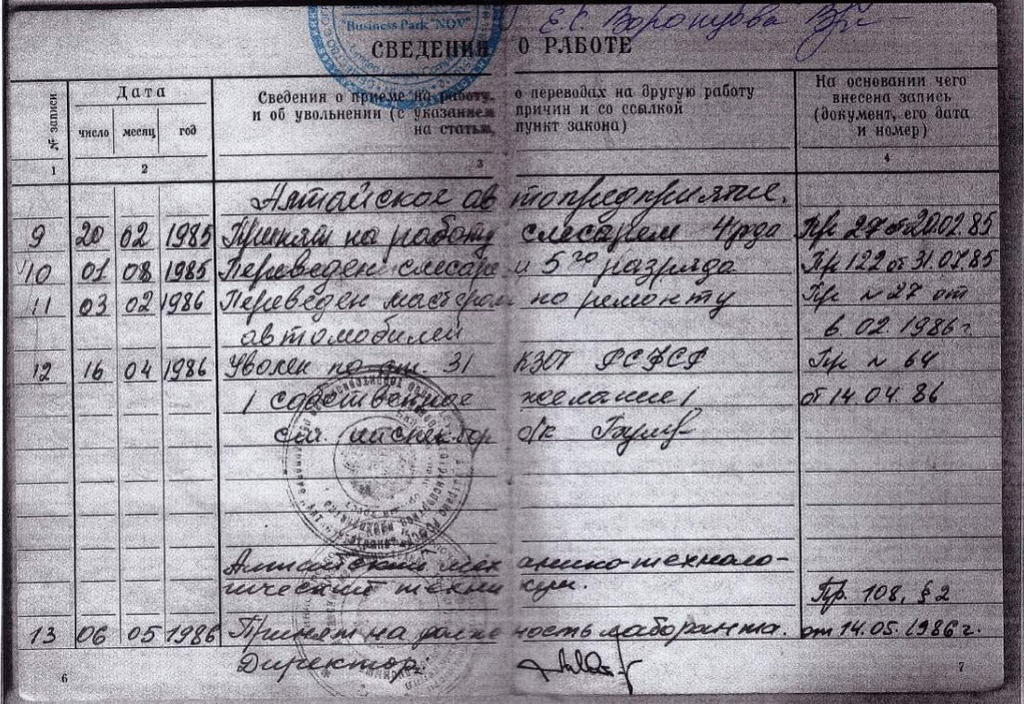 "Business Park "NOV"
Е.С. Воронцова
СВЕДЕНИЯ О РАБОТЕ
№ записи
Дата
число месяц год
Сведения о приеме на работу, о переводах на другую работу
и об увольнении (с указанием причин и со ссылкой
на статью, пункт закона)
На основании чего
внесена запись
(документ, его дата
и номер)
1 2 3 4
Алтайское автопредприятие.
9 20 02 1985 Принят на работу слесарем 4 рзда Пр 27 от 20.02.85
10 01 08 1985 Переведен слесарем 5го разряда Пр 122 от 31.07.85
11 03 02 1986 Переведен мастером по ремонту Пр №27 от
автомобилей 6.02.1986г
12 16 04 1986 Уволен по ст. 31 КЗОТ РСФСР Пр № 64
/ собственное желание / от 14.04.86
ст. инспектор о/к
Алтайский механико-техноло-
гический техникум. Пр. 108, § 2
13 06 05 1986 Принят на должность лаборанта. от 14.05.1986г.
Директор:
6 7